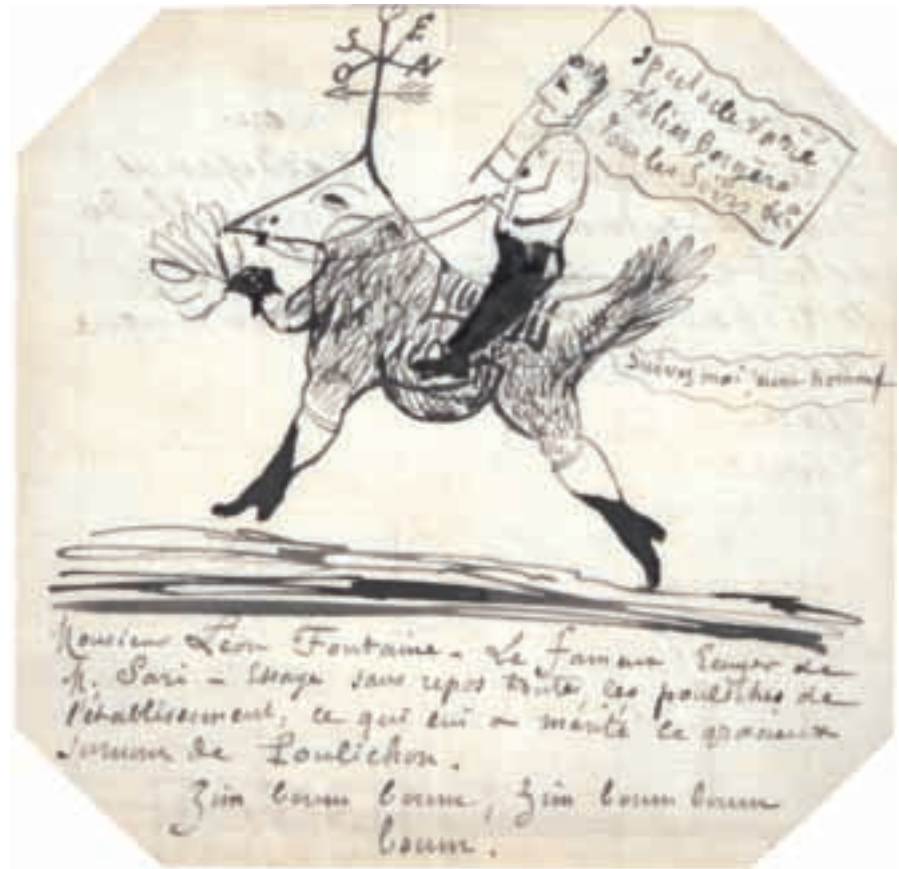 S E
O N
Spectacle varié
Folies Bergère
Tous les Soirs
Suivez moi, jeune homme
Monsieur Léon Fontaine - Le fameux Ecuyer de
M. Sari - Essaye sans repos toutes les pouliches de
l'établissement, ce qui lui a mérité le gracieux
surnom de Poulichon.
Zim boum boum, Zim boum boum
boum.